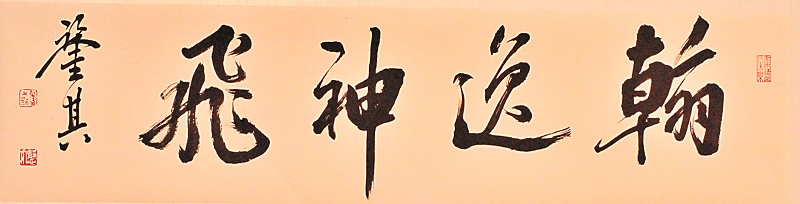 翰逸神飛
其